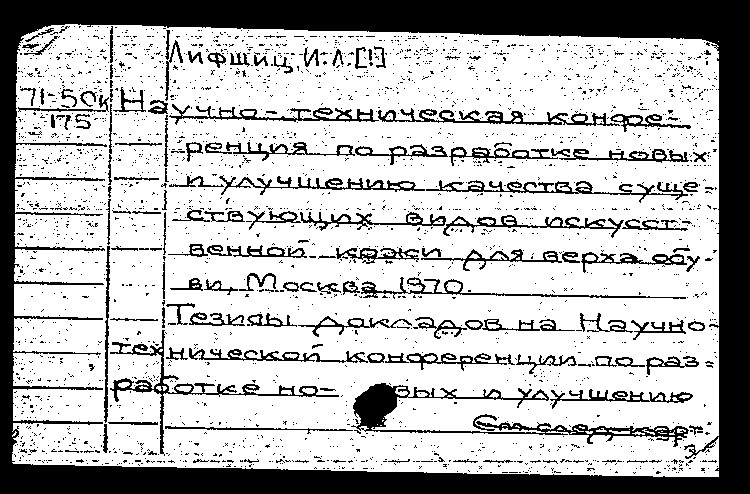 Лифшиц И.Л.[1]
71-50к
175
Научно-техническая конфе-
ренция по разработке новых
и улучшению качества суще-
ствующих видов искусст-
венной кожи для верха обу-
ви, Москва 1970.
Тезисы докладов на Научно-
технической конференции по раз-
работке но- вых и улучшению
См след кар-
3